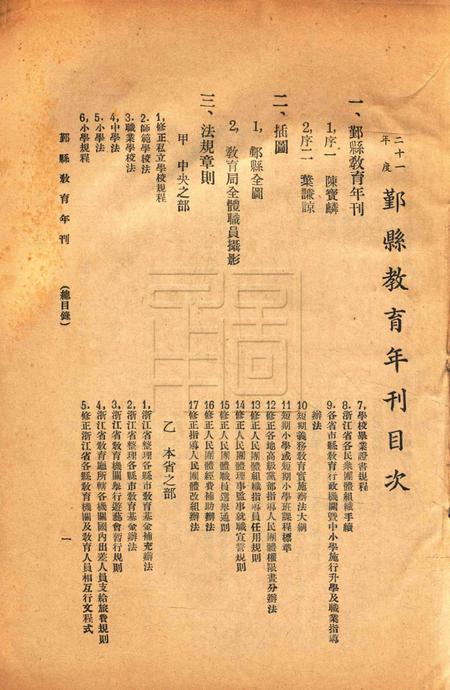 二十一年度 鄞縣教育年刊目次
一、鄞縣教育年刊
1,序一 陳寶麟
2,序二 葉謙諒
二、插圖
1, 鄞縣全圖
2, 教育局全體職員攝影
三、法規章則
甲 中央之部
1,修正私立學校規程
2,師範學校法
3,職業學校法
4,中學法
5,小學法
6,小學規程
7,學校畢業證書規程
8,浙江省各民衆團體組織手續
9,各省市縣教育行政機關暨中小學施行升學及職業指導辦法
10短期義務教育實施辦法大綱
11短期小學或短期小學班課程標準
12修正各地高級黨部指導人民團體權限畫分辦法
13修正人民團體組織指導員任用規則
14修正人民團體理事監事就職宣誓規則
15修正人民團體職員選舉通則
16修正人民團體經費補助辦法
17修正指導人民團體改組辦法
乙 本省之部
1,浙江省整理各縣市教育基金補充辦法
2,浙江省整理各縣市教育基金辦法
3,浙江省教育機關舉行遊藝會暫行規則
4,浙江省教育廳所轄各機關國內出差人員支給旅費規則
5,修正浙江省各縣教育機關及教育人員相互行文程式
鄞縣教育年刊 (總目錄) 一